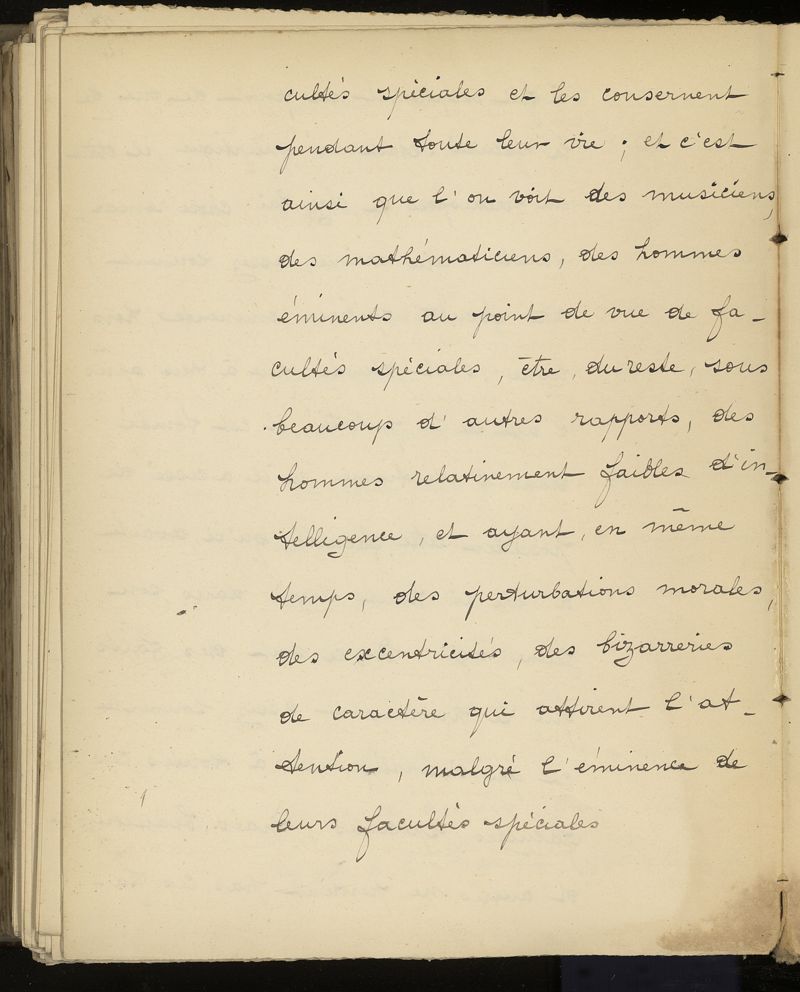 cultés spéciales et les conservent
pendant toute leur vie ; et c'est
ainsi que l'on voit des musiciens,
des mathématiciens, des hommes
éminents au point de vue de fa-
cultés spéciales, être, du reste, sous
beaucoup d'autres rapports, des
hommes relativement faibles d'in-
telligence, et ayant, en même
temps, des perturbations morales,
des excentricités, des bizarreries
de caractère qui attirent l'at-
tention, malgré l'éminence de
leurs facultés spéciales